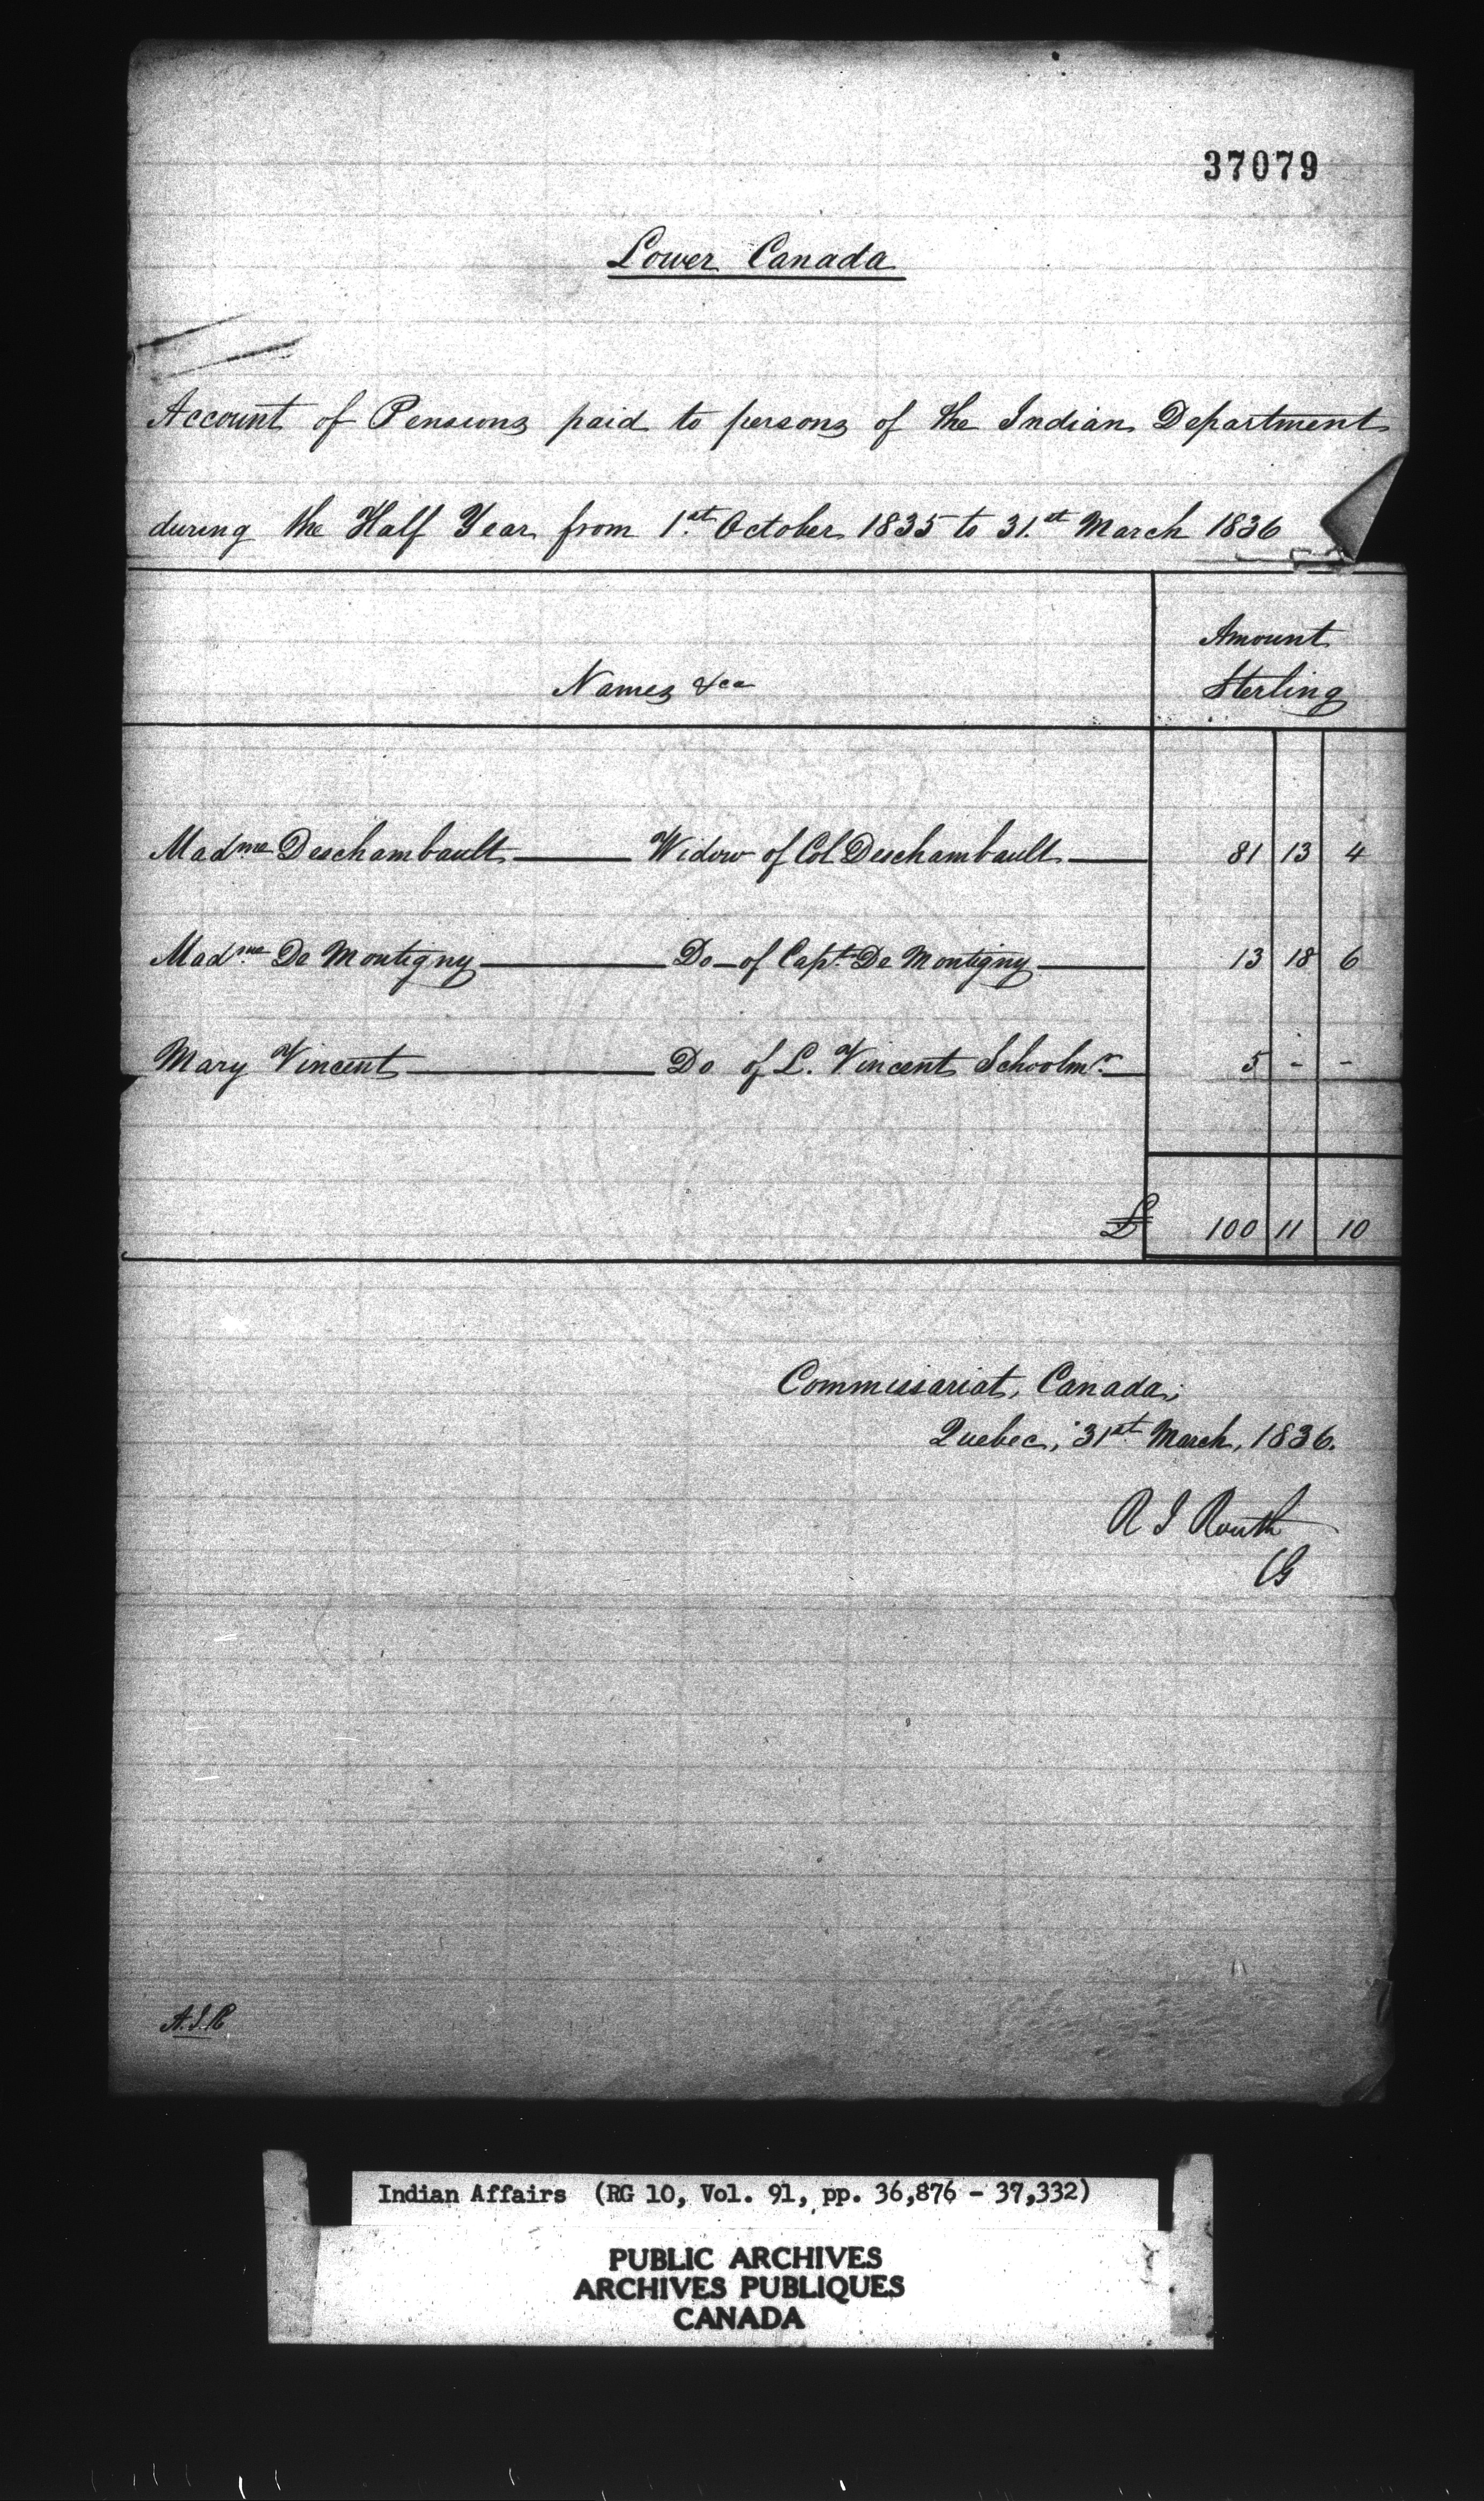 37079
Lower Canada
Account of Pensions paid to persons of the Indian Department
during the Half Year from 1st October 1835 to 31st March 1836
Names &ca
Amount
Sterling
Madme Deschambault — Widow of Col Deschambault — 81 13 4
Madme De Montigny — Do – of Capt De Montigny — 13 18 6
Mary Vincent — Do of L. Vincent Schoolmr — 5 - -
£ 100 11 10
Commissariat, Canada;
Quebec, 31st March, 1836.
R I Routh
CG
A.I.R
Indian Affairs (RG 10, Vol. 91, pp. 36,876 - 37,332)
PUBLIC ARCHIVES
ARCHIVES PUBLIQUES
CANADA